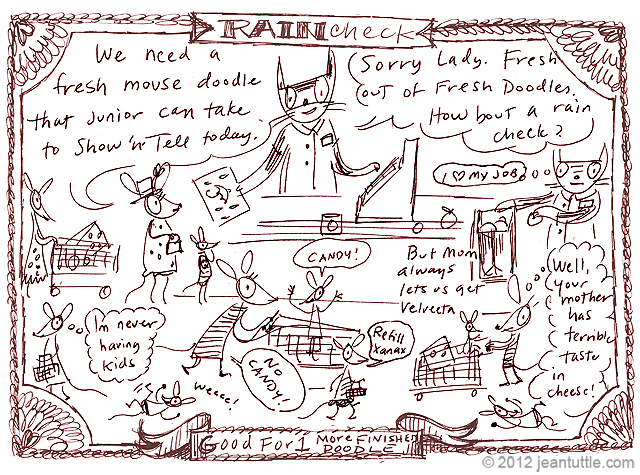 RAIN check
We need a
fresh mouse doodle
that Junior can take
to Show 'n Tell today.
Sorry Lady. Fresh
out of Fresh Doodles.
How bout a rain
check?
I ♡ MY JOB
CANDY!
But Mom
always
lets us get
Velveeta
Well,
your
mother
has
terrible
taste
in
cheese!
I'm never
having
kids
NO
CANDY!
Refill
Xanax
Weeee!
Good For 1 More Finished
DOODLE
© 2012 jeantuttle.com